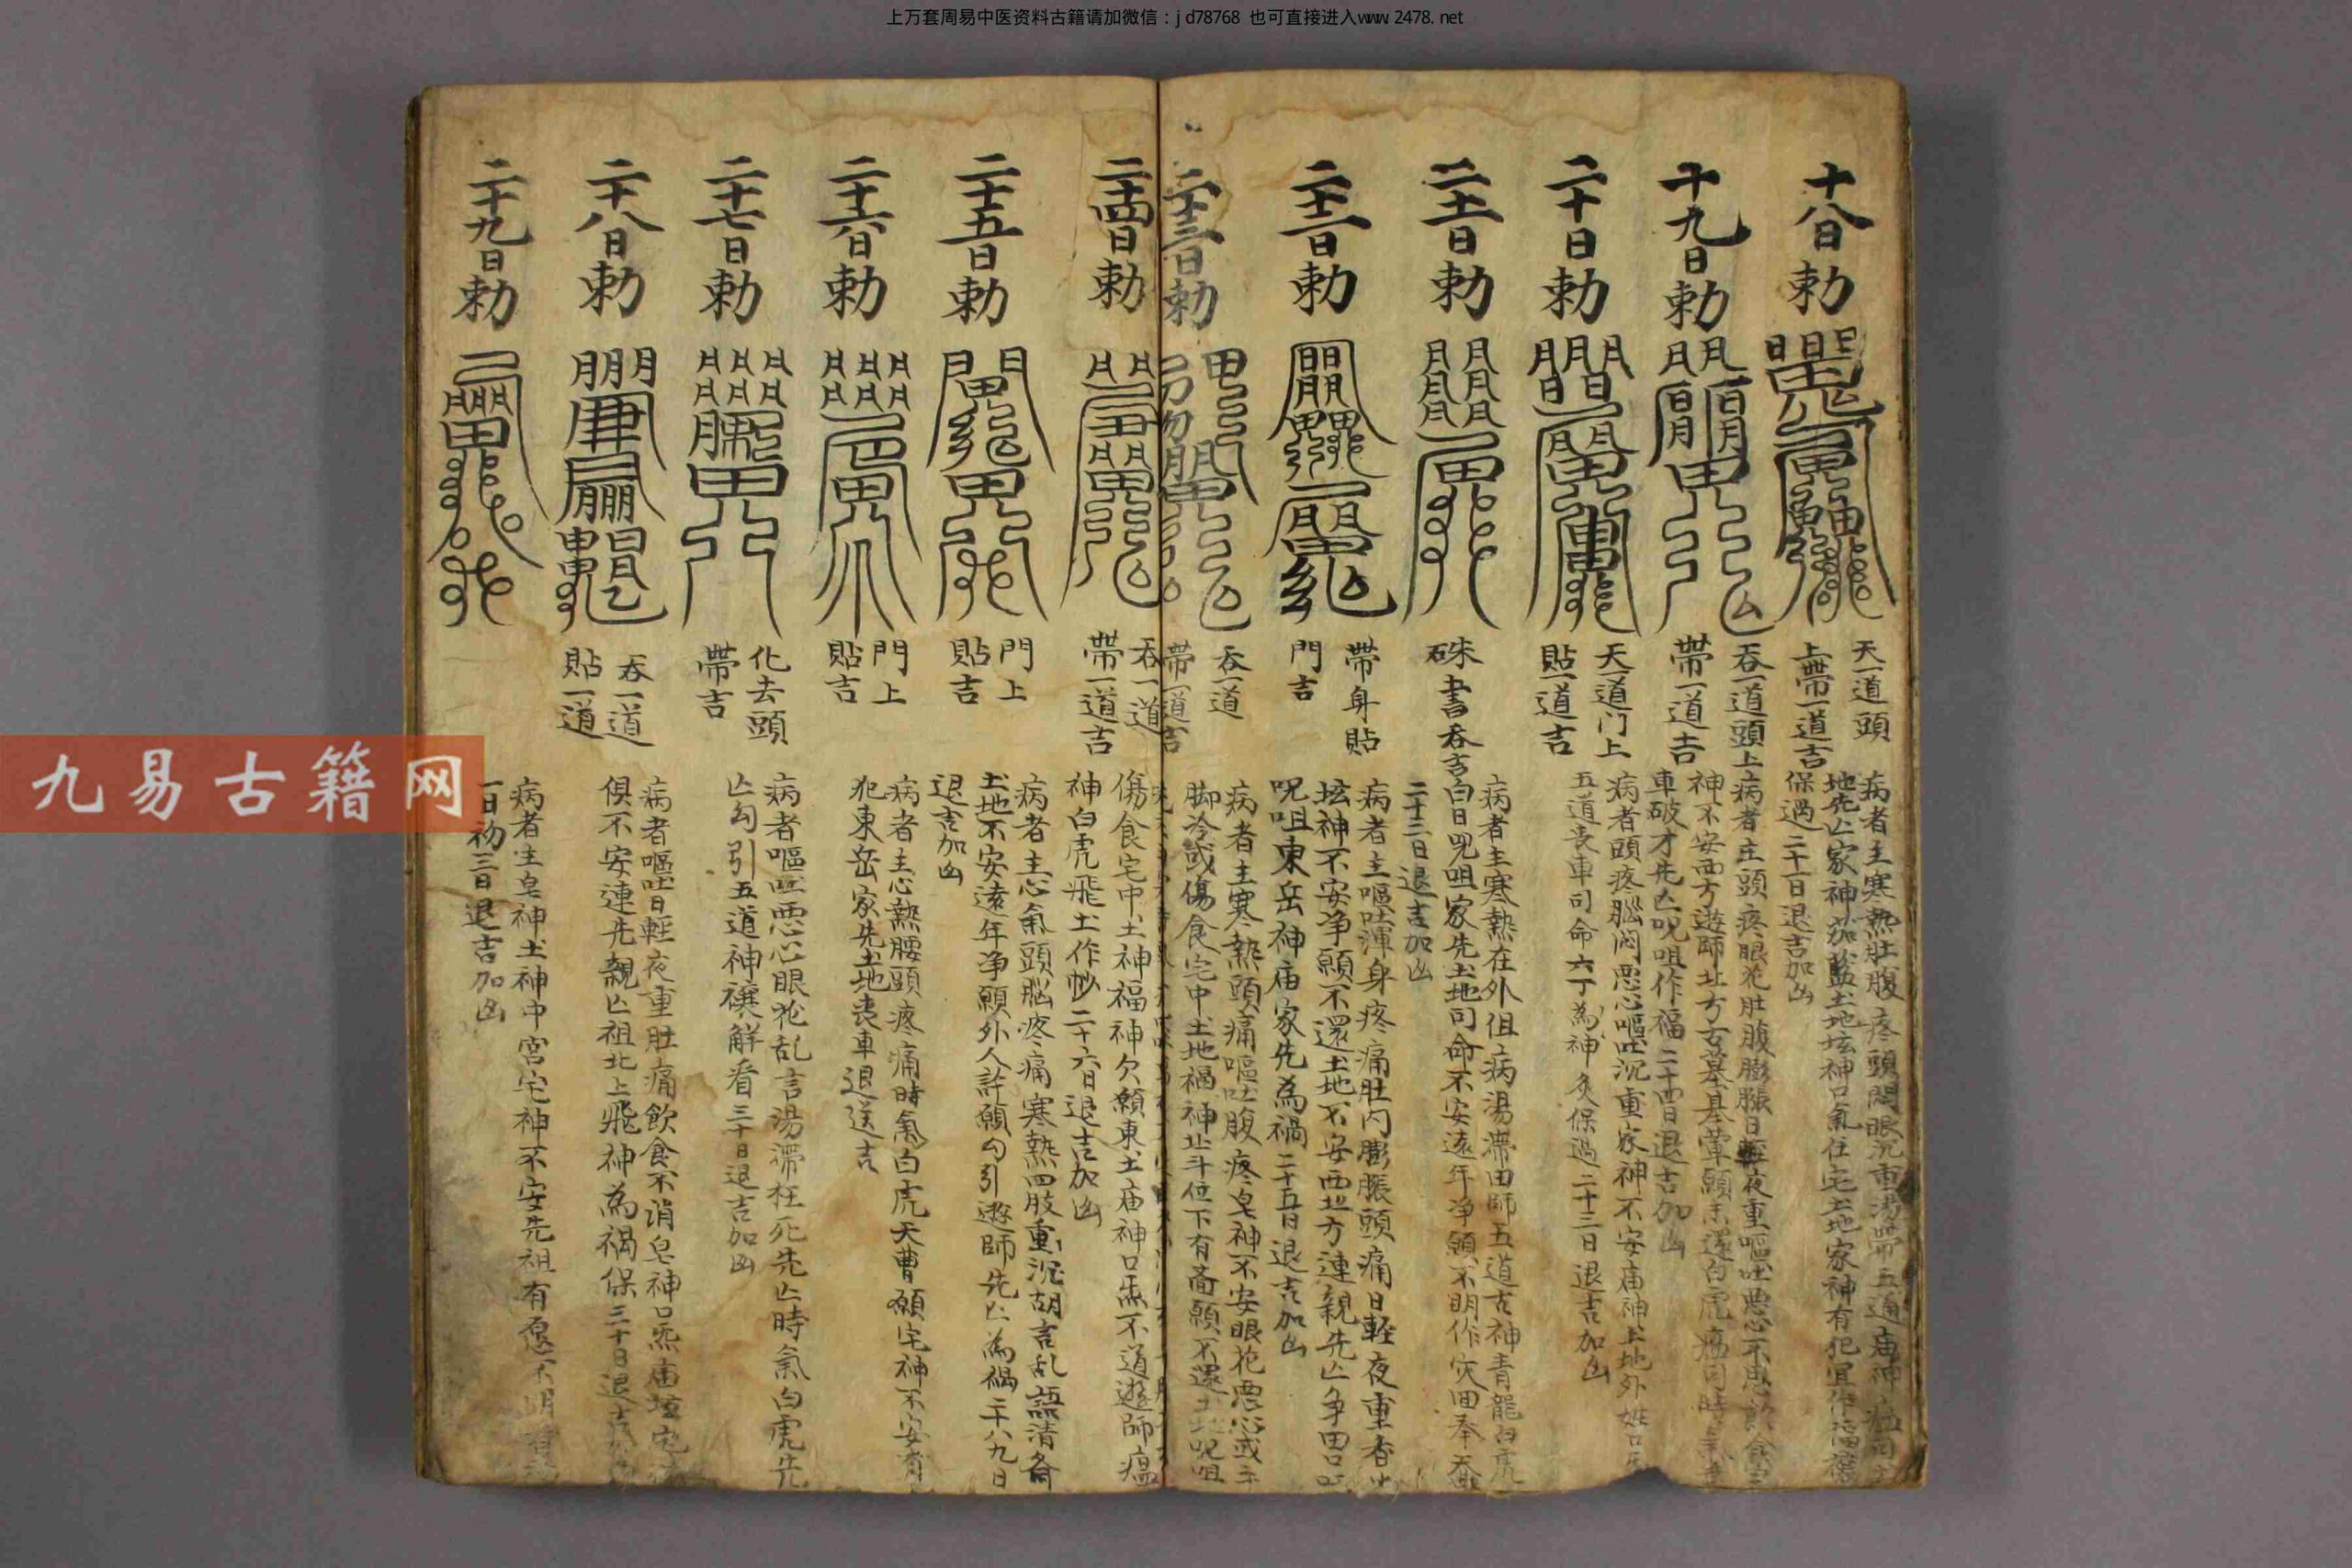 上万套周易中医资料古籍请加微信：jd78768 也可直接进入www.2478.net
九易古籍网
十八日勅
天一道頭
上帶一道吉
病者主寒熱肚腹疼頭悶眼沉重湯
地先亾家神茄藍土地坛神口氣住宅土地家神有犯宜作福
保過二十日退吉加凶
十九日勅
吞一道頭上
帶一道吉
病者主頭疼眼花肚腹膨脹日輕夜重嘔吐悪心不思飲食
神不安西方遊師北方古墓
車破才先亾呪咀作福二十四日退吉加凶
二十日勅
天一道门上
貼一道吉
病者頭疼腦悶悪心嘔吐沉重家神不安庙神土地外姓
五道丧車司命六丁為神灸保過二十三日退吉加凶
二十一日勅
硃書吞吉
病者主寒熱在外伹病湯滯田師五道古神青龍白虎
白日呪咀家先土地司命不安遠年净願不明作灾田奉
二十三日退吉加凶
二十二日勅
帶身貼
門吉
病者主嘔吐渾身疼痛肚内膨脹頭痛日輕夜重
坛神不安净願不還土地不安西北方連親先亾争田
呪咀東岳神庙家先為禍二十五日退吉加凶
二十三日勅
吞一道
帶一道吉
病者主寒熱頭痛嘔吐腹疼皂神不安眼花悪心或
脚冷或傷食宅中土地福神北斗位下有斋願不還土地呪咀
二十四日勅
吞一道
帶一道吉
傷食宅中土神福神欠願東土庙神口炁不道遊師瘟
神白虎飛土作㤆二十六日退吉加凶
二十五日勅
門上
貼吉
病者主心氣頭脳疼痛寒熱四肢重沉胡言乱語清斋
土地不安遠年净願外人許願勾引遊師先亾為禍二十八九日
退吉加凶
二十六日勅
門上
貼吉
病者主心熱腰頭疼痛時氣白虎天曹願宅神不安
犯東岳家先土地丧車退送吉
二十七日勅
化去頭
帶吉
病者嘔吐悪心眼花乱言湯滯枉死先亾時氣白虎先
亾勾引五道神禳解看三十日退吉加凶
二十八日勅
吞一道
貼一道
病者嘔吐日輕夜重肚痛飲食不消皂神口炁庙坛宅
俱不安連先親亾祖北上飛神為禍保三十日退吉
二十九日勅
病者主皂神土神中宮宅神不安先祖有愿不明
一日初三日退吉加凶